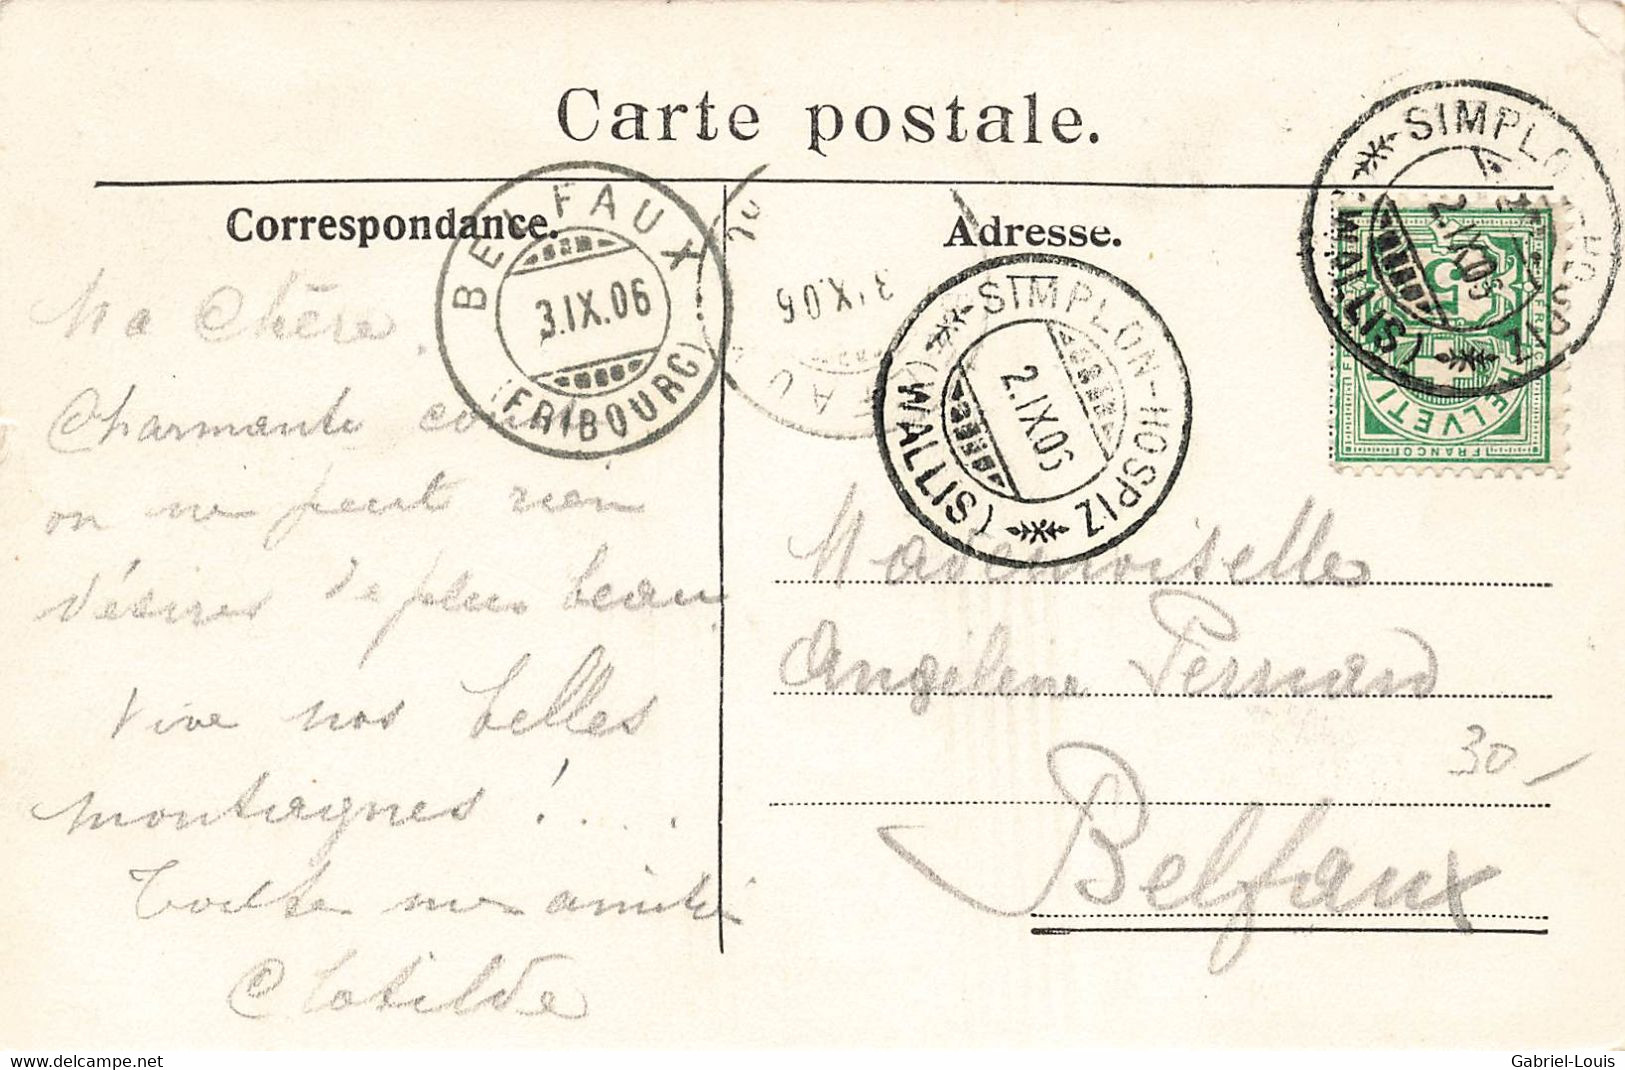 Carte postale.
Correspondance.
Adresse.
BELFAUX
3.IX.06
(FRIBOURG)
3.IX.06
SIMPLON-HOSPIZ
2.IX.06
(WALLIS)
SIMPLON-HOSPIZ
2.IX.06
(WALLIS)
5
HELVETIA
FRANCO
Ma Chère,
Charmante course
on ne peut rien
désirer de plus beau
Vive nos belles
montagnes! ...
Toute mon amitié
Clotilde
Mademoiselle
Angéline Pernard
Belfaux
30 -
delcampe.net
Gabriel-Louis